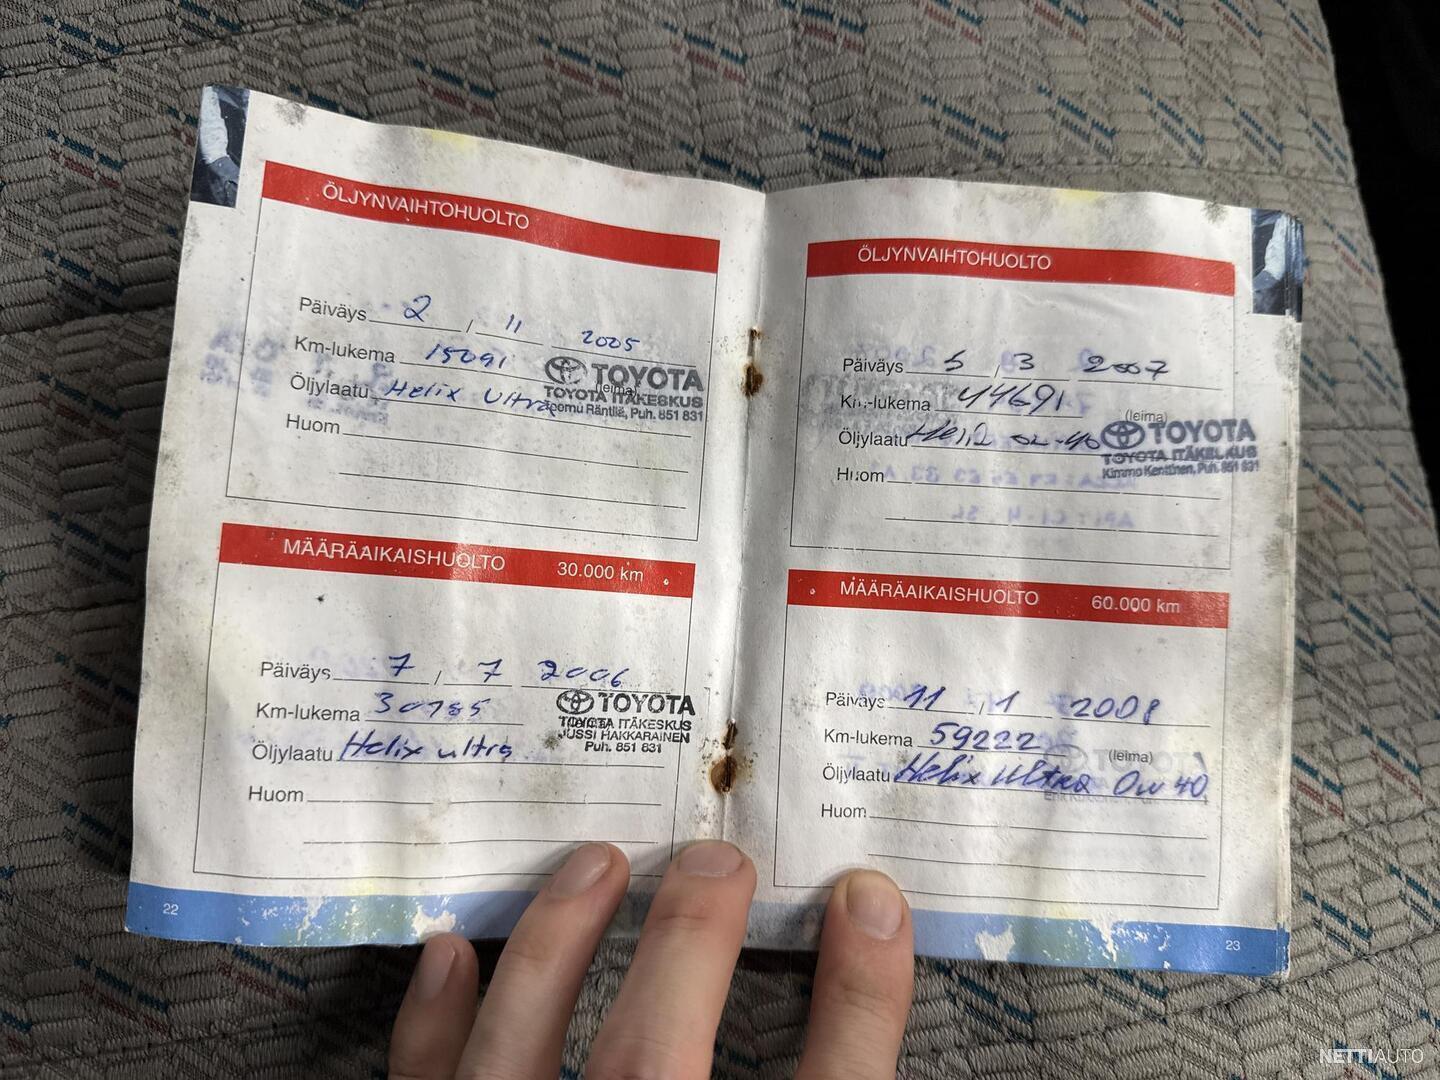 ÖLJYNVAIHTOHUOLTO
Päiväys 2 / 11 2005
Km-lukema 15091
(leima)
TOYOTA
TOYOTA ITÄKESKUS
Puh. 851 831
Öljylaatu Helix Ultra
Huom
MÄÄRÄAIKAISHUOLTO 30.000 km
Päiväys 7 / 7 2006
Km-lukema 30785
TOYOTA
TOYOTA ITÄKESKUS
JUSSI HAKKARAINEN
Puh. 851 831
Öljylaatu Helix ultra
Huom
22
ÖLJYNVAIHTOHUOLTO
Päiväys 5 / 3 2007
Km-lukema 44691
(leima)
TOYOTA
TOYOTA ITÄKESKUS
Kimmo Kenttinen, Puh. 851 831
Öljylaatu
Huom
MÄÄRÄAIKAISHUOLTO 60.000 km
Päiväys 11 / 1 2008
Km-lukema 59222
(leima)
Öljylaatu Helix Ultra 0w40
Huom
23
NETTIAUTO